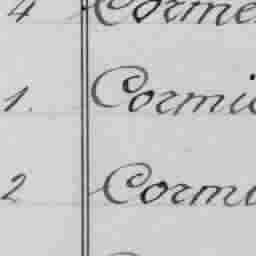 4 Corme
1. Cormi
2 Cormi